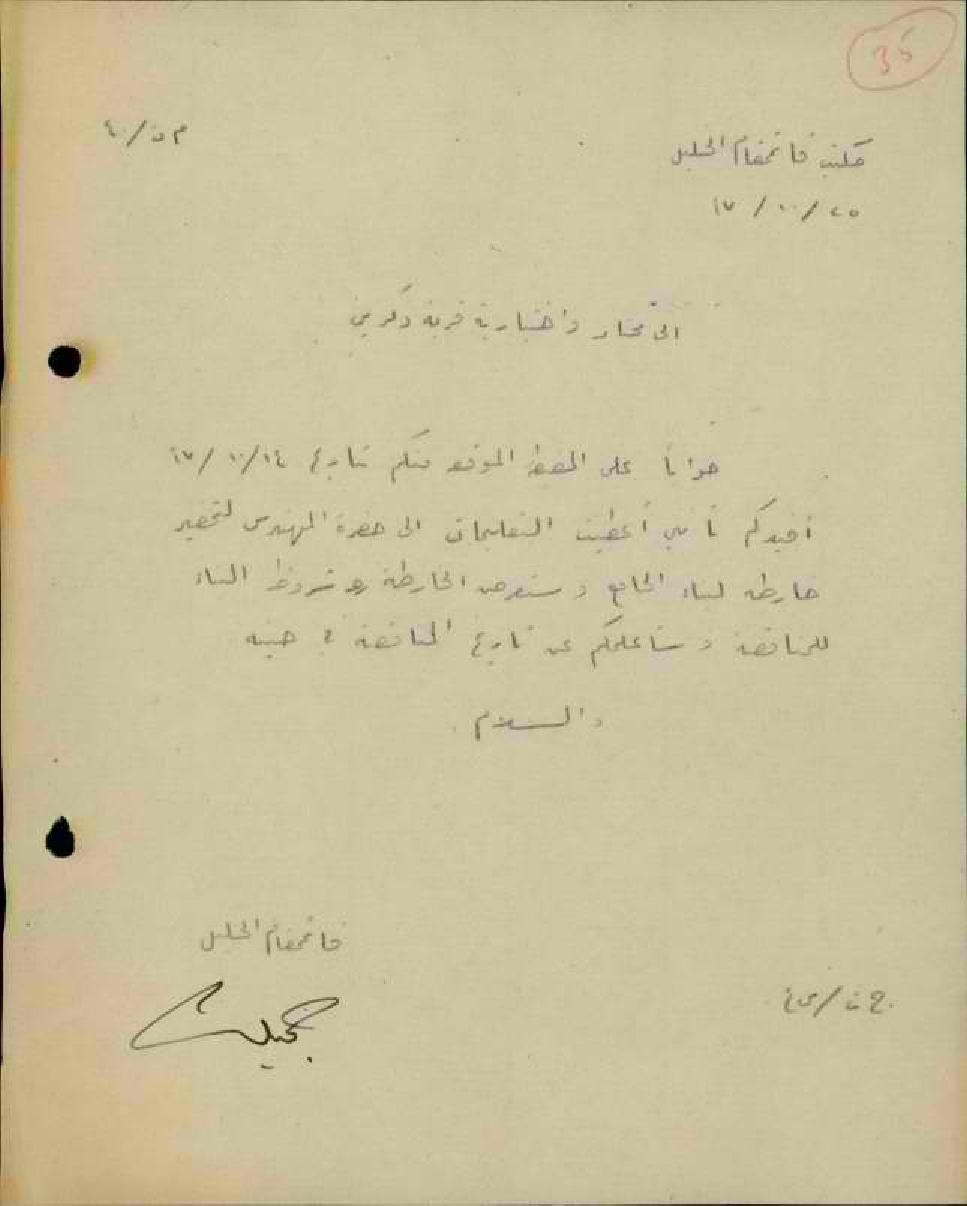 35
م ن/٤٠
مكتب قائمقام الخليل
٢٥/١٠/٤٧
الى مختار واختيارية قرية دكرين
جواباً على المضبطة الموقعة منكم بتاريخ ١٤/١٠/٤٧
أفيدكم بأنني أعطيت التعليمات الى حضرة المهندس لتحضير
خارطة لبناء الجامع وستعرض الخارطة وشروط البناء
للمناقصة وسأعلمكم عن تاريخ المناقصة في حينه
والسلام.
قائمقام الخليل